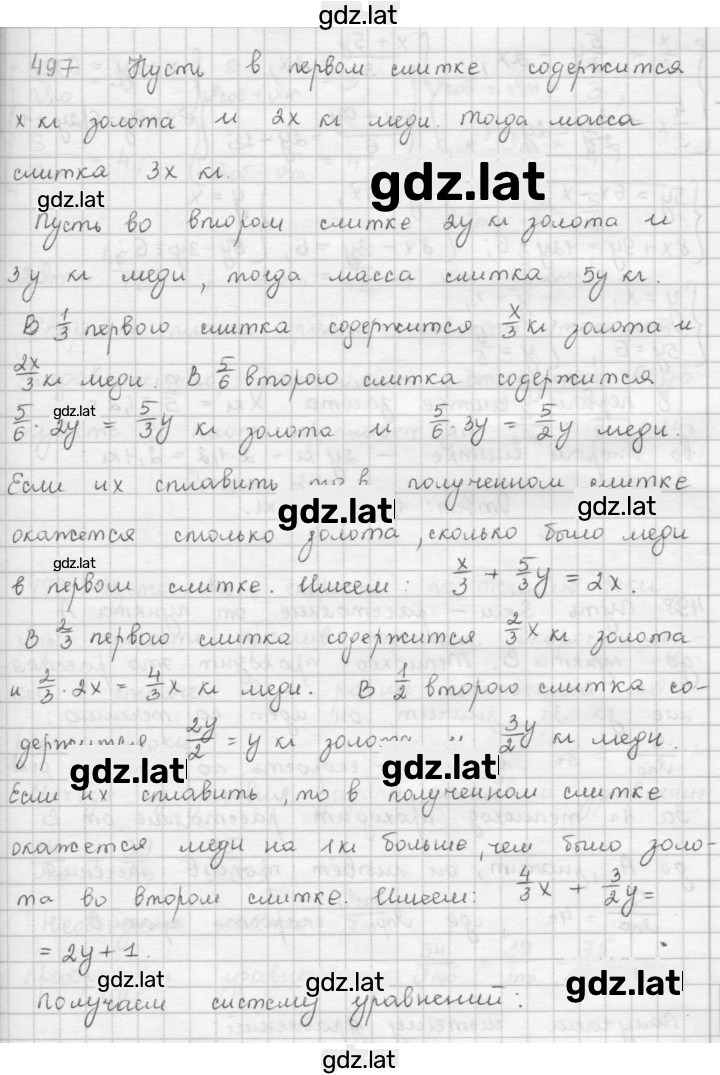 gdz.lat
497 Пусть в первом слитке содержится
x кг золота и 2x кг меди. Тогда масса
слитка 3x кг.
gdz.lat
gdz.lat
Пусть во втором слитке 2y кг золота и
3y кг меди, тогда масса слитка 5y кг.
В 1/3 первого слитка содержится x/3 кг золота и
2x/3 кг меди. В 5/6 второго слитка содержится
gdz.lat
5/6 · 2y = 5/3 y кг золота и 5/6 · 3y = 5/2 y меди.
Если их сплавить, то в полученном слитке
gdz.lat
gdz.lat
окажется столько золота, сколько было меди
gdz.lat
в первом слитке. Имеем: x/3 + 5/3 y = 2x.
В 2/3 первого слитка содержится 2/3 x кг золота
и 2/3 · 2x = 4/3 x кг меди. В 1/2 второго слитка со-
держится 2y/2 = y кг золота и 3/2 y кг меди.
gdz.lat
gdz.lat
Если их сплавить, то в полученном слитке
окажется меди на 1 кг больше, чем было золо-
та во втором слитке. Имеем: 4/3 x + 3/2 y =
= 2y + 1.
gdz.lat
gdz.lat
gdz.lat
Получаем систему уравнений:
gdz.lat